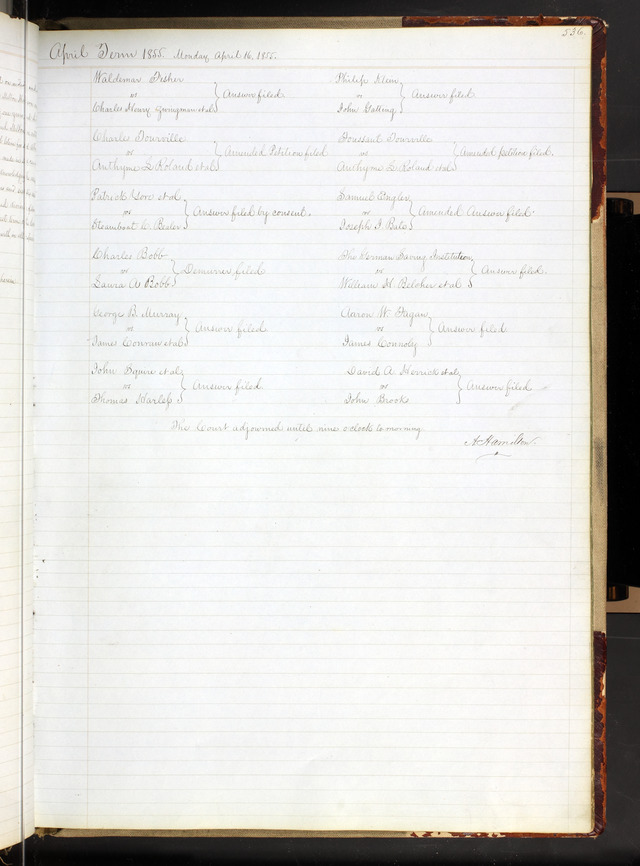 336.
April Term 1855. Monday April 16, 1855.
Waldemar Fisher
vs
Charles Henry et al
Answer filed.
Philip Klein
vs
John Gatting
Answer filed
Charles Tourville
vs
Anthyme L Roland et al
Amended Petition filed
Toussaint Tourville
vs
Anthyme L Roland et al
Amended petition filed.
Patrick Gore et al
vs
Steamboat C. Beder
Answer filed by consent.
Samuel Engler
vs
Joseph J. Bates
Amended Answer filed.
Charles Bobb
vs
Laura A Bobb
Demurrer filed
The German Saving Institution
vs
William H. Belcher et al
Answer filed.
George B. Murray
vs
James Conran et al
Answer filed.
Aaron W. Fagan
vs
James Connoly
Answer filed
John Squire et al
vs
Thomas Harless
Answer filed.
David A Herrick et al
vs
John Brooks
Answer filed
The Court adjourned until nine o'clock to morning
A Hamilton.